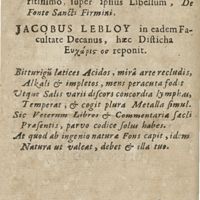 ritissimo, super ipsius Libellum, De
Fonte Sancti Firmini.
JACOBUS LEBLOY in eadem Fa-
cultate Decanus, hæc Disticha
reponit.
Bitturigũ latices Acidos, mirâ arte recludis,
Alkali & impletos, mens peracuta fodit
Utque Salis varii discors concordia lymphas,
Temperat, & cogit plura Metalla simul.
Sic Veterum Libros & Commentaria sæcli
Præsentis, parvo codice solus habes.
At quod ab ingenio naturæ Fons capit, idem
Natura ut valeat, debet & illa tuo.